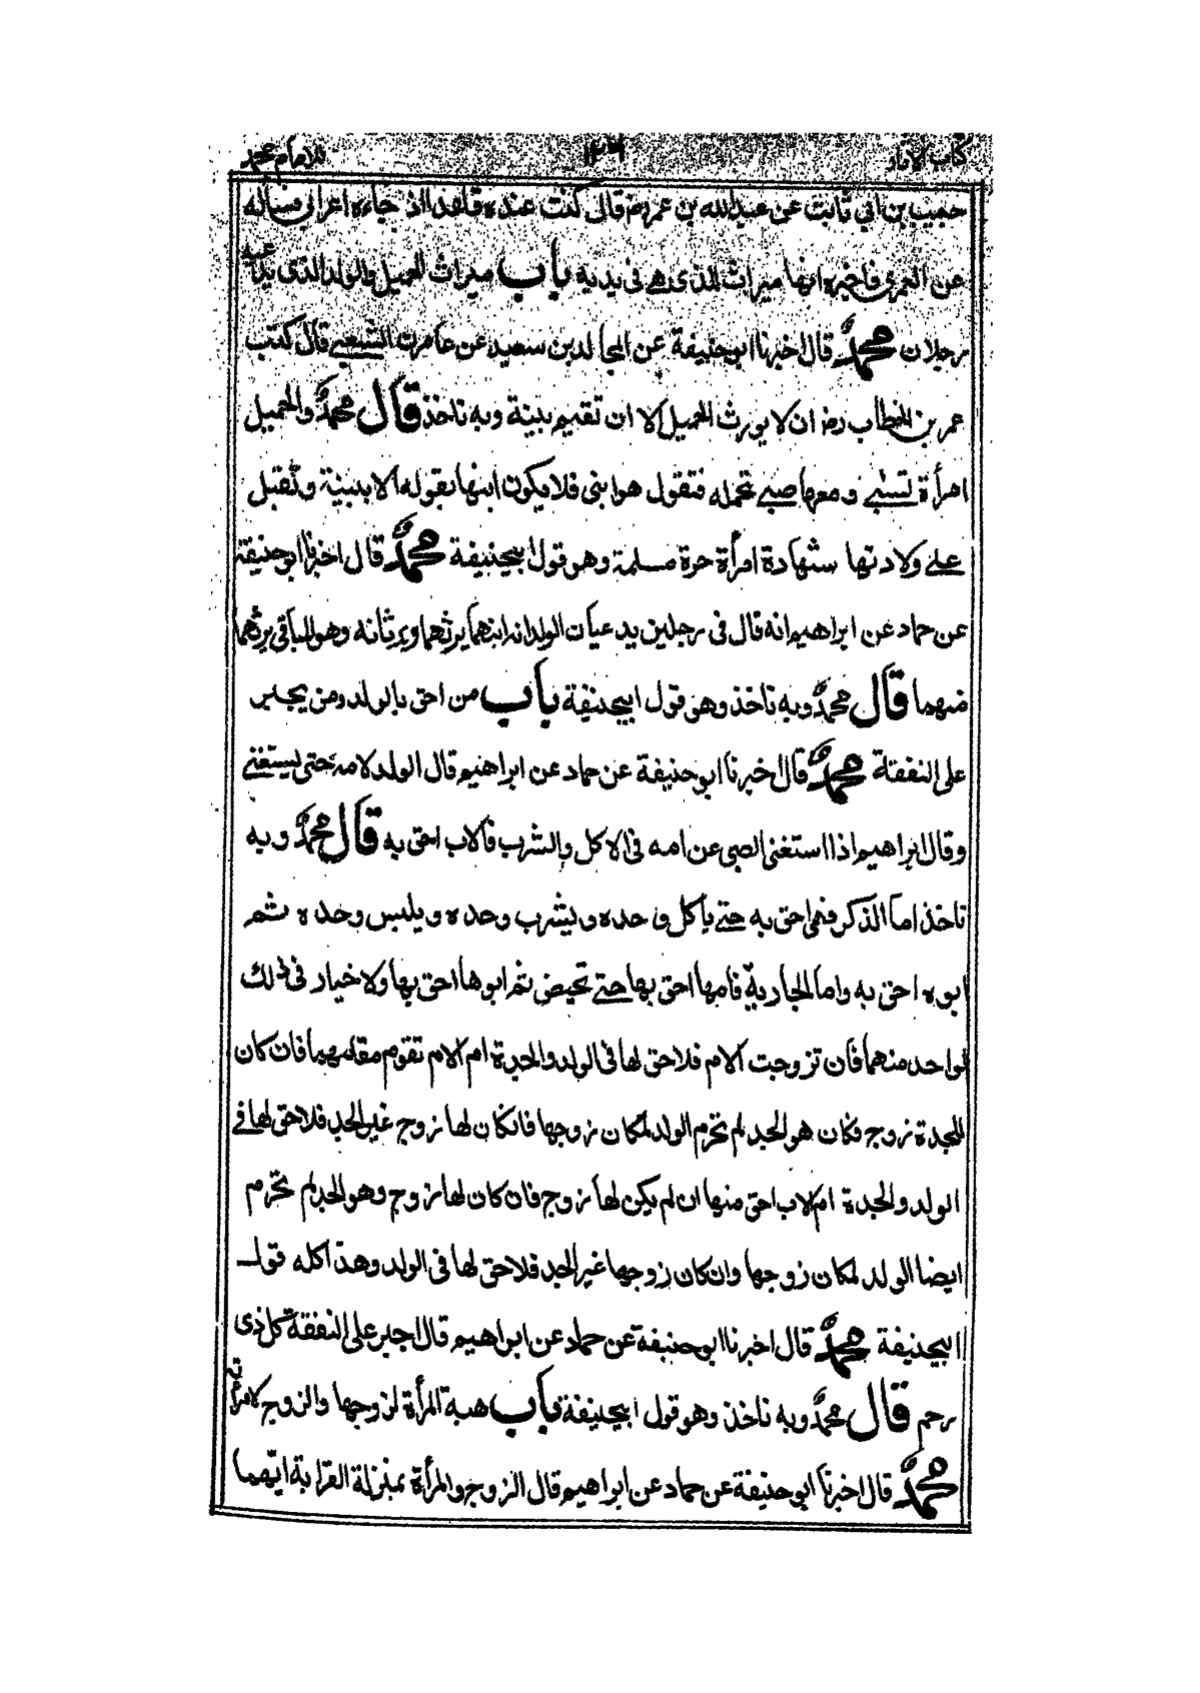 كتاب الاثار ١٢٦ للامام محمد
حبيب بن ابي ثابت عن عبدالله بن عمر رض قال كنت عنده قاعدا اذ جاءه اعرابي فسأله
عن العمرى فاخبره انها ميراث للذى هى فى يديه باب ميراث الحميل والولد الذى يدعيه
رجلان محمد قال اخبرنا ابوحنيفة عن المجالد بن سعيد عن عامر الشعبے قال كتب
عمر بن الخطاب رض ان لا يورث الحميل الا ان تقيم بينة وبه ناخذ قال محمد والحميل
امرأة تسبے ومعها صبے تحمله فتقول هو ابنى فلا يكون ابنها بقوله الا ببينة وتقبل
علے ولادتها شهادة امرأة حرة مسلمة وهو قول ابيحنيفة محمد قال اخبرنا ابوحنيفة
عن حماد عن ابراهيم انه قال فى رجلين يدعيان الولد انه ابنهما يرثهما ويرثانه وهو للباقى يرثهما
منهما قال محمد وبه ناخذ وهو قول ابيحنيفة باب من احق بالولد ومن يجبر
على النفقة محمد قال اخبرنا ابوحنيفة عن حماد عن ابراهيم قال الولد لامه حتى يستغنے
وقال ابراهيم اذا استغنى الصبى عن امه فى الاكل والشرب فالاب احق به قال محمد وبه
ناخذ اما الذكر فهى احق به حتے ياكل وحده ويشرب وحده ويلبس وحده ثم
ابوه احق به واما الجارية فامها احق بها حتے تحيض ثم ابوها احق بها ولا خيار فى ذلك
لواحد منهما فان تزوجت الام فلا حق لها فى الولد والجدة ام الام تقوم مقامهما فان كان
للجدة زوج فكان هو الجد لم تحرم الولد لمكان زوجها فان كان لها زوج غير الجد فلا حق لها فے
الولد والجدة ام الاب احق منها ان لم يكن لها زوج فان كان لها زوج وهو الجد لم تحرم
ايضا الولد لمكان زوجها وان كان زوجها غير الجد فلا حق لها فى الولد وهذا كله قول
ابيحنيفة محمد قال اخبرنا ابوحنيفة عن حماد عن ابراهيم قال اجبر على النفقة كل ذى
رحم قال محمد وبه ناخذ وهو قول ابيحنيفة باب هبة المرأة لزوجها والزوج لامرأته
محمد قال اخبرنا ابوحنيفة عن حماد عن ابراهيم قال الزوج والمرأة بمنزلة القرابة ايهما